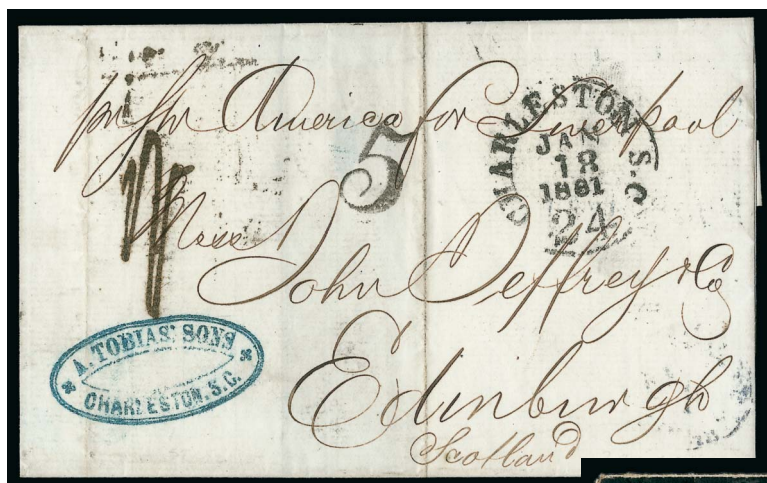 pr Str America for Liverpool
5
CHARLESTON S.C.
JAN
18
1861
24
Messrs
John Jeffrey & Co
Edinburgh
Scotland
A. TOBIAS' SONS
CHARLESTON, S.C.